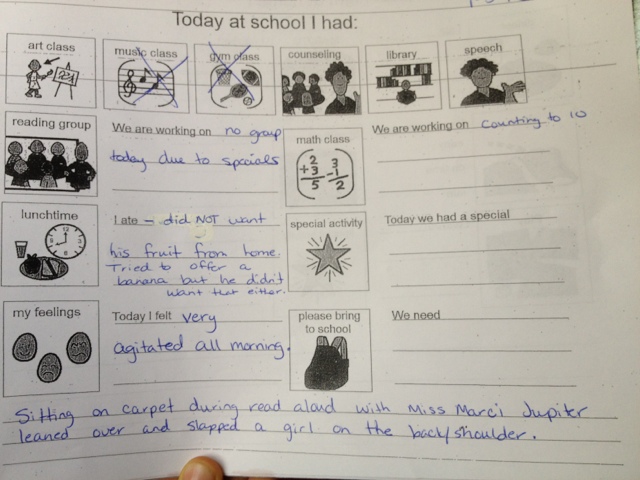 Today at school I had:
art class music class gym class counseling library speech
reading group
We are working on no group
today due to specials
math class
2 3
+3 -1
5 2
We are working on counting to 10
lunchtime
I ate – did NOT want
his fruit from home.
Tried to offer a
banana but he didn't
want that either.
special activity
Today we had a special
my feelings
Today I felt very
agitated all morning.
please bring
to school
We need
Sitting on carpet during read aloud with Miss Marci Jupiter
leaned over and slapped a girl on the back/shoulder.